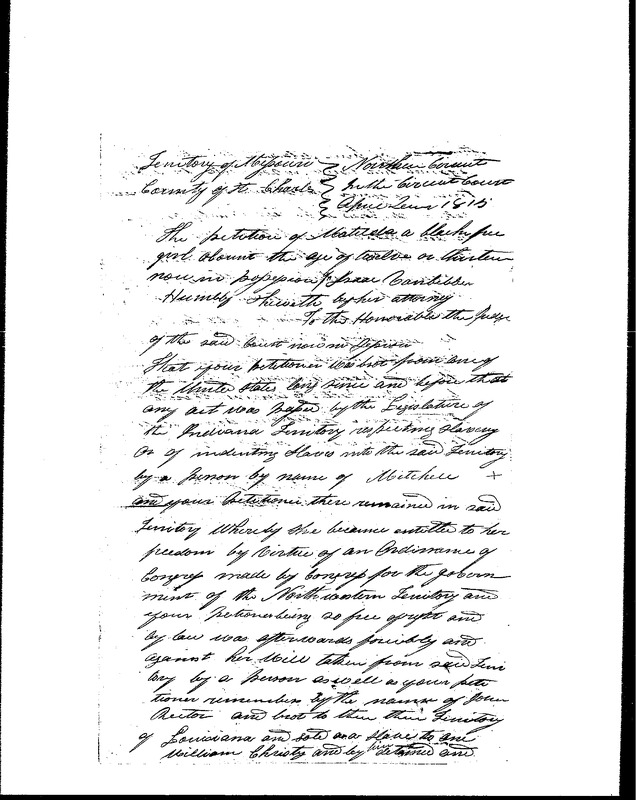 Territory of Missouri } Northern Circuit
County of St Charles } In the Circuit Court
April Term 1815
The petition of Matilda a black free
girl about the age of twelve or thirteen
now in possession of Isaac
Humbly Sheweth by her attorney
To the Honorable the Judge
of the said Court now in Session
That your petitioner was brot from one of
the United States long since and before that
any act was passed by the Legislature of
the Indiana Territory respecting Slavery
or of indenting Slaves into the said Territory
by a person by name of Mitchell +
and your Petitioner there remained in said
Territory Whereby she became entitled to her
freedom by Virtue of an Ordinance of
Congress made by Congress for the govern
ment of the North western Territory and
your petitioner being so free of right and
by law was afterwards forcibly and
against her Will taken from said Terri
tory by a person as well as your peti
tioner remembers by the name of John
Rector and brot to the then Territory
of Louisiana and sold as a Slave to one
William Christy and by him detained and